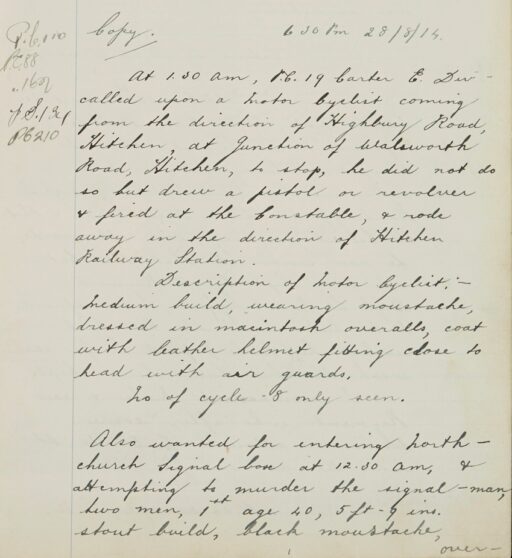 Copy. 6 30 Pm 28/8/14.
P.C. 88
P.S. 134
PC 210
At 1.30 am, P.C. 19 Carter E. Div-
called upon a Motor Cyclist coming
from the direction of Highbury Road,
Hitchen, at Junction of Walsworth
Road, Hitchen, to stop, he did not do
so but drew a pistol or revolver
& fired at the Constable, & rode
away in the direction of Hitchen
Railway Station.
Description of Motor Cyclist:-
Medium build, wearing moustache,
dressed in macintosh overalls, coat
with leather helmet fitting close to
head with ear guards.
No of cycle - 8 only seen.
Also wanted for entering North-
church Signal box at 12.30 am, &
attempting to murder the signal-man,
two men, 1st age 40, 5 ft-9 ins.
stout build, black moustache,
over-